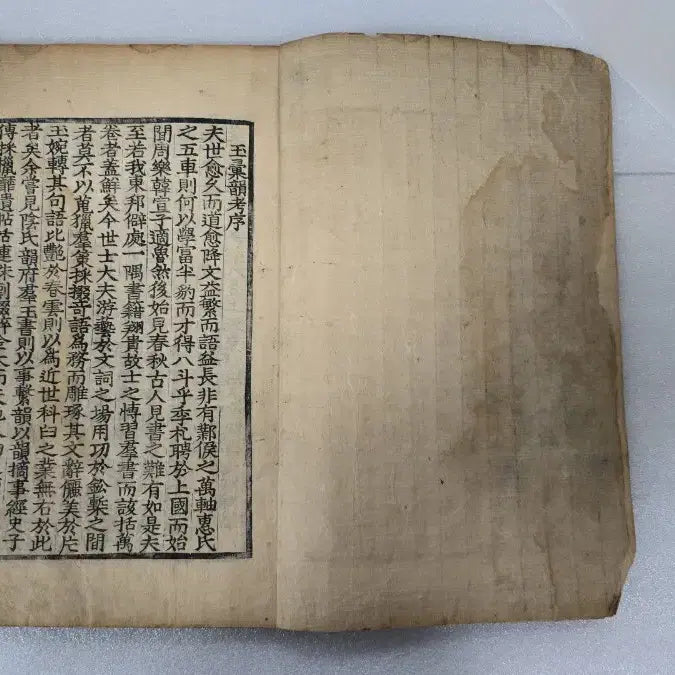 玉彙韻考序
夫世愈久而道愈降文益繁而語益長非有鄴侯之萬軸惠氏
之五車則何以學富半豹而才得八斗乎季札聘於上國而始
聞周樂韓宣子適魯然後始見春秋古人見書之難有如是夫
至若我東邦僻處一隅書籍翔貴故士之慱習羣書而該括萬
卷者盖鮮矣今世士大夫游藝於文詞之場用功於鈆槧之間
者莫不以蒐獵羣策採掇奇語爲務而雕琢其文辭儷美於片
玉婉轉其句語比艶於春雲則以爲近世科臼之業無右於此
者矣余甞見陰氏韻府羣玉書則以事繫韻以韻摘事經史子
傳採